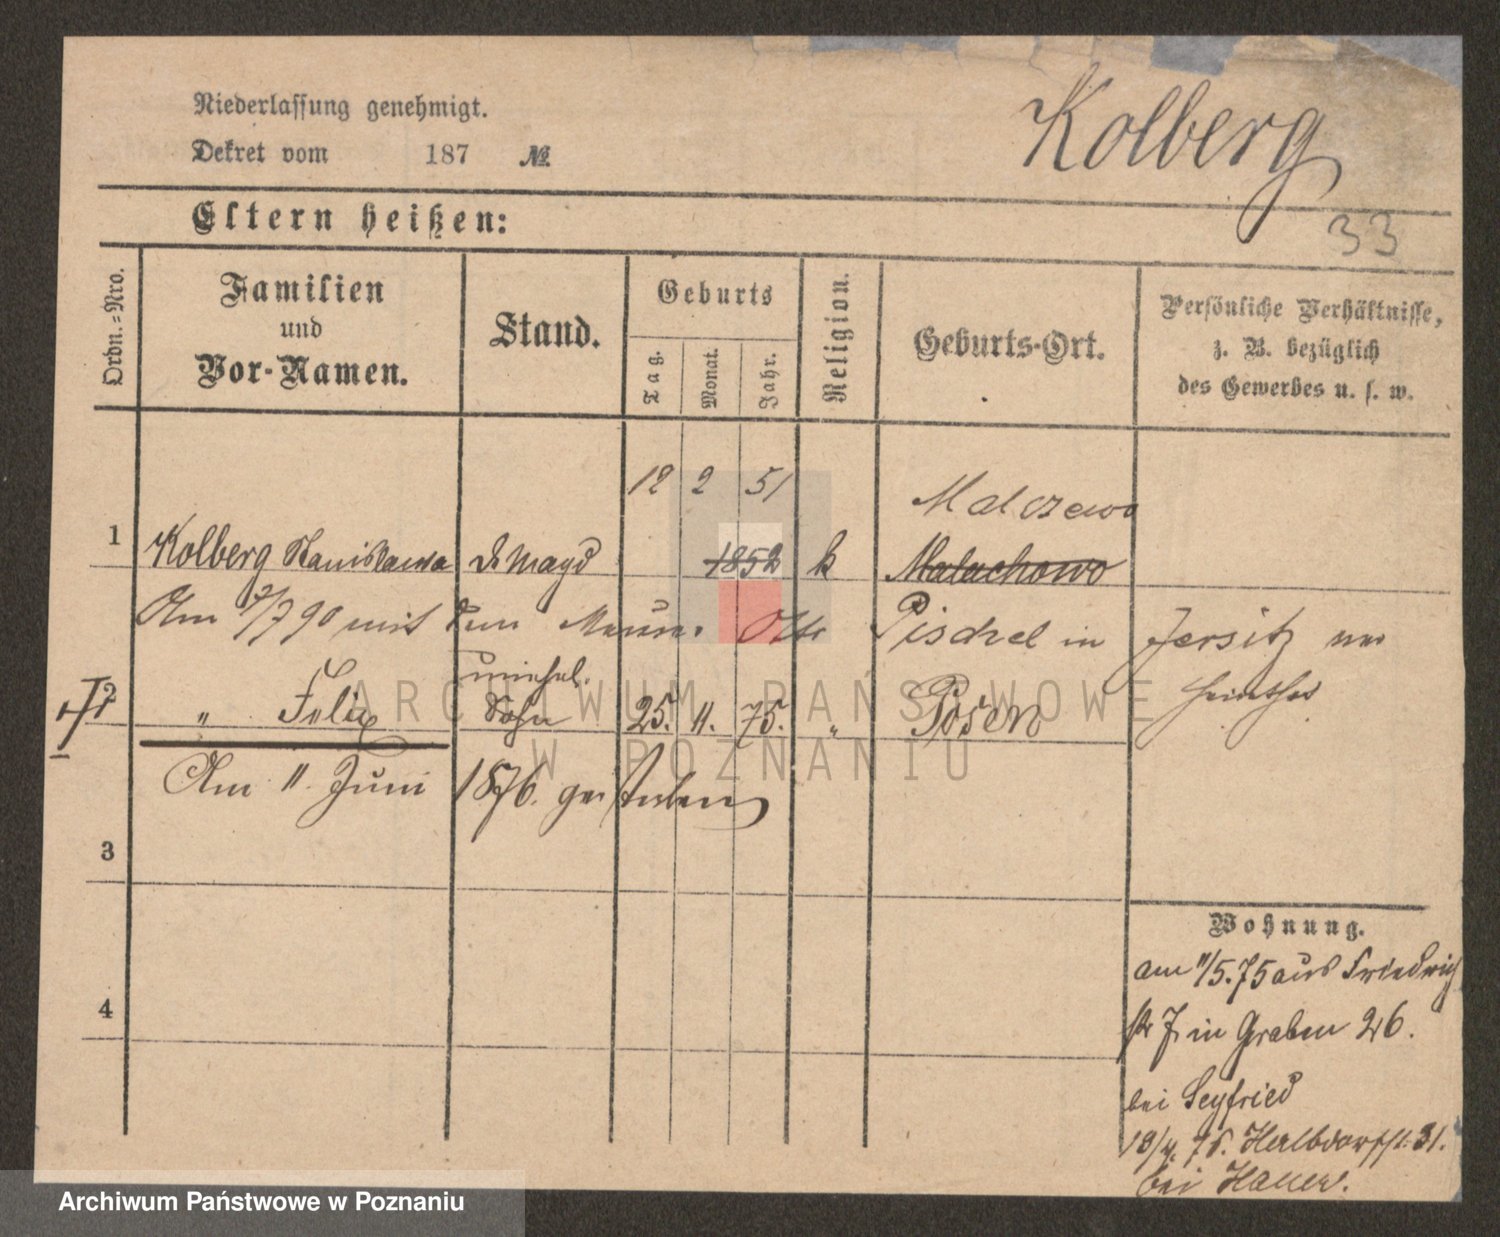 Niederlassung genehmigt.
Dekret vom 187 №
Kolberg
33
Eltern heißen:
Ordn.-Nro.
Familien
und
Vor-Namen.
Stand.
Geburts
Tag.
Monat.
Jahr.
Religion.
Geburts-Ort.
Persönliche Verhältnisse,
z. B. bezüglich
des Gewerbes u. s. w.
12 2 51 Malczewo
1 Kolberg Stanislawa d. Magd 1852 k Malachowo
Am 7/7 90 mit dem Maurer Otto Pischel in Jersitz ver
heirathet
unehel.
2 " Felix Sohn 25. 11. 75. " Posen
Am 11. Juni 1876. gestorben
3
4
Wohnung.
am 11/5.75 aus Friedrich
str 7 in Graben 26.
bei Seyfried
bei Hauer.
ARCHIWUM PAŃSTWOWE
W POZNANIU
Archiwum Państwowe w Poznaniu